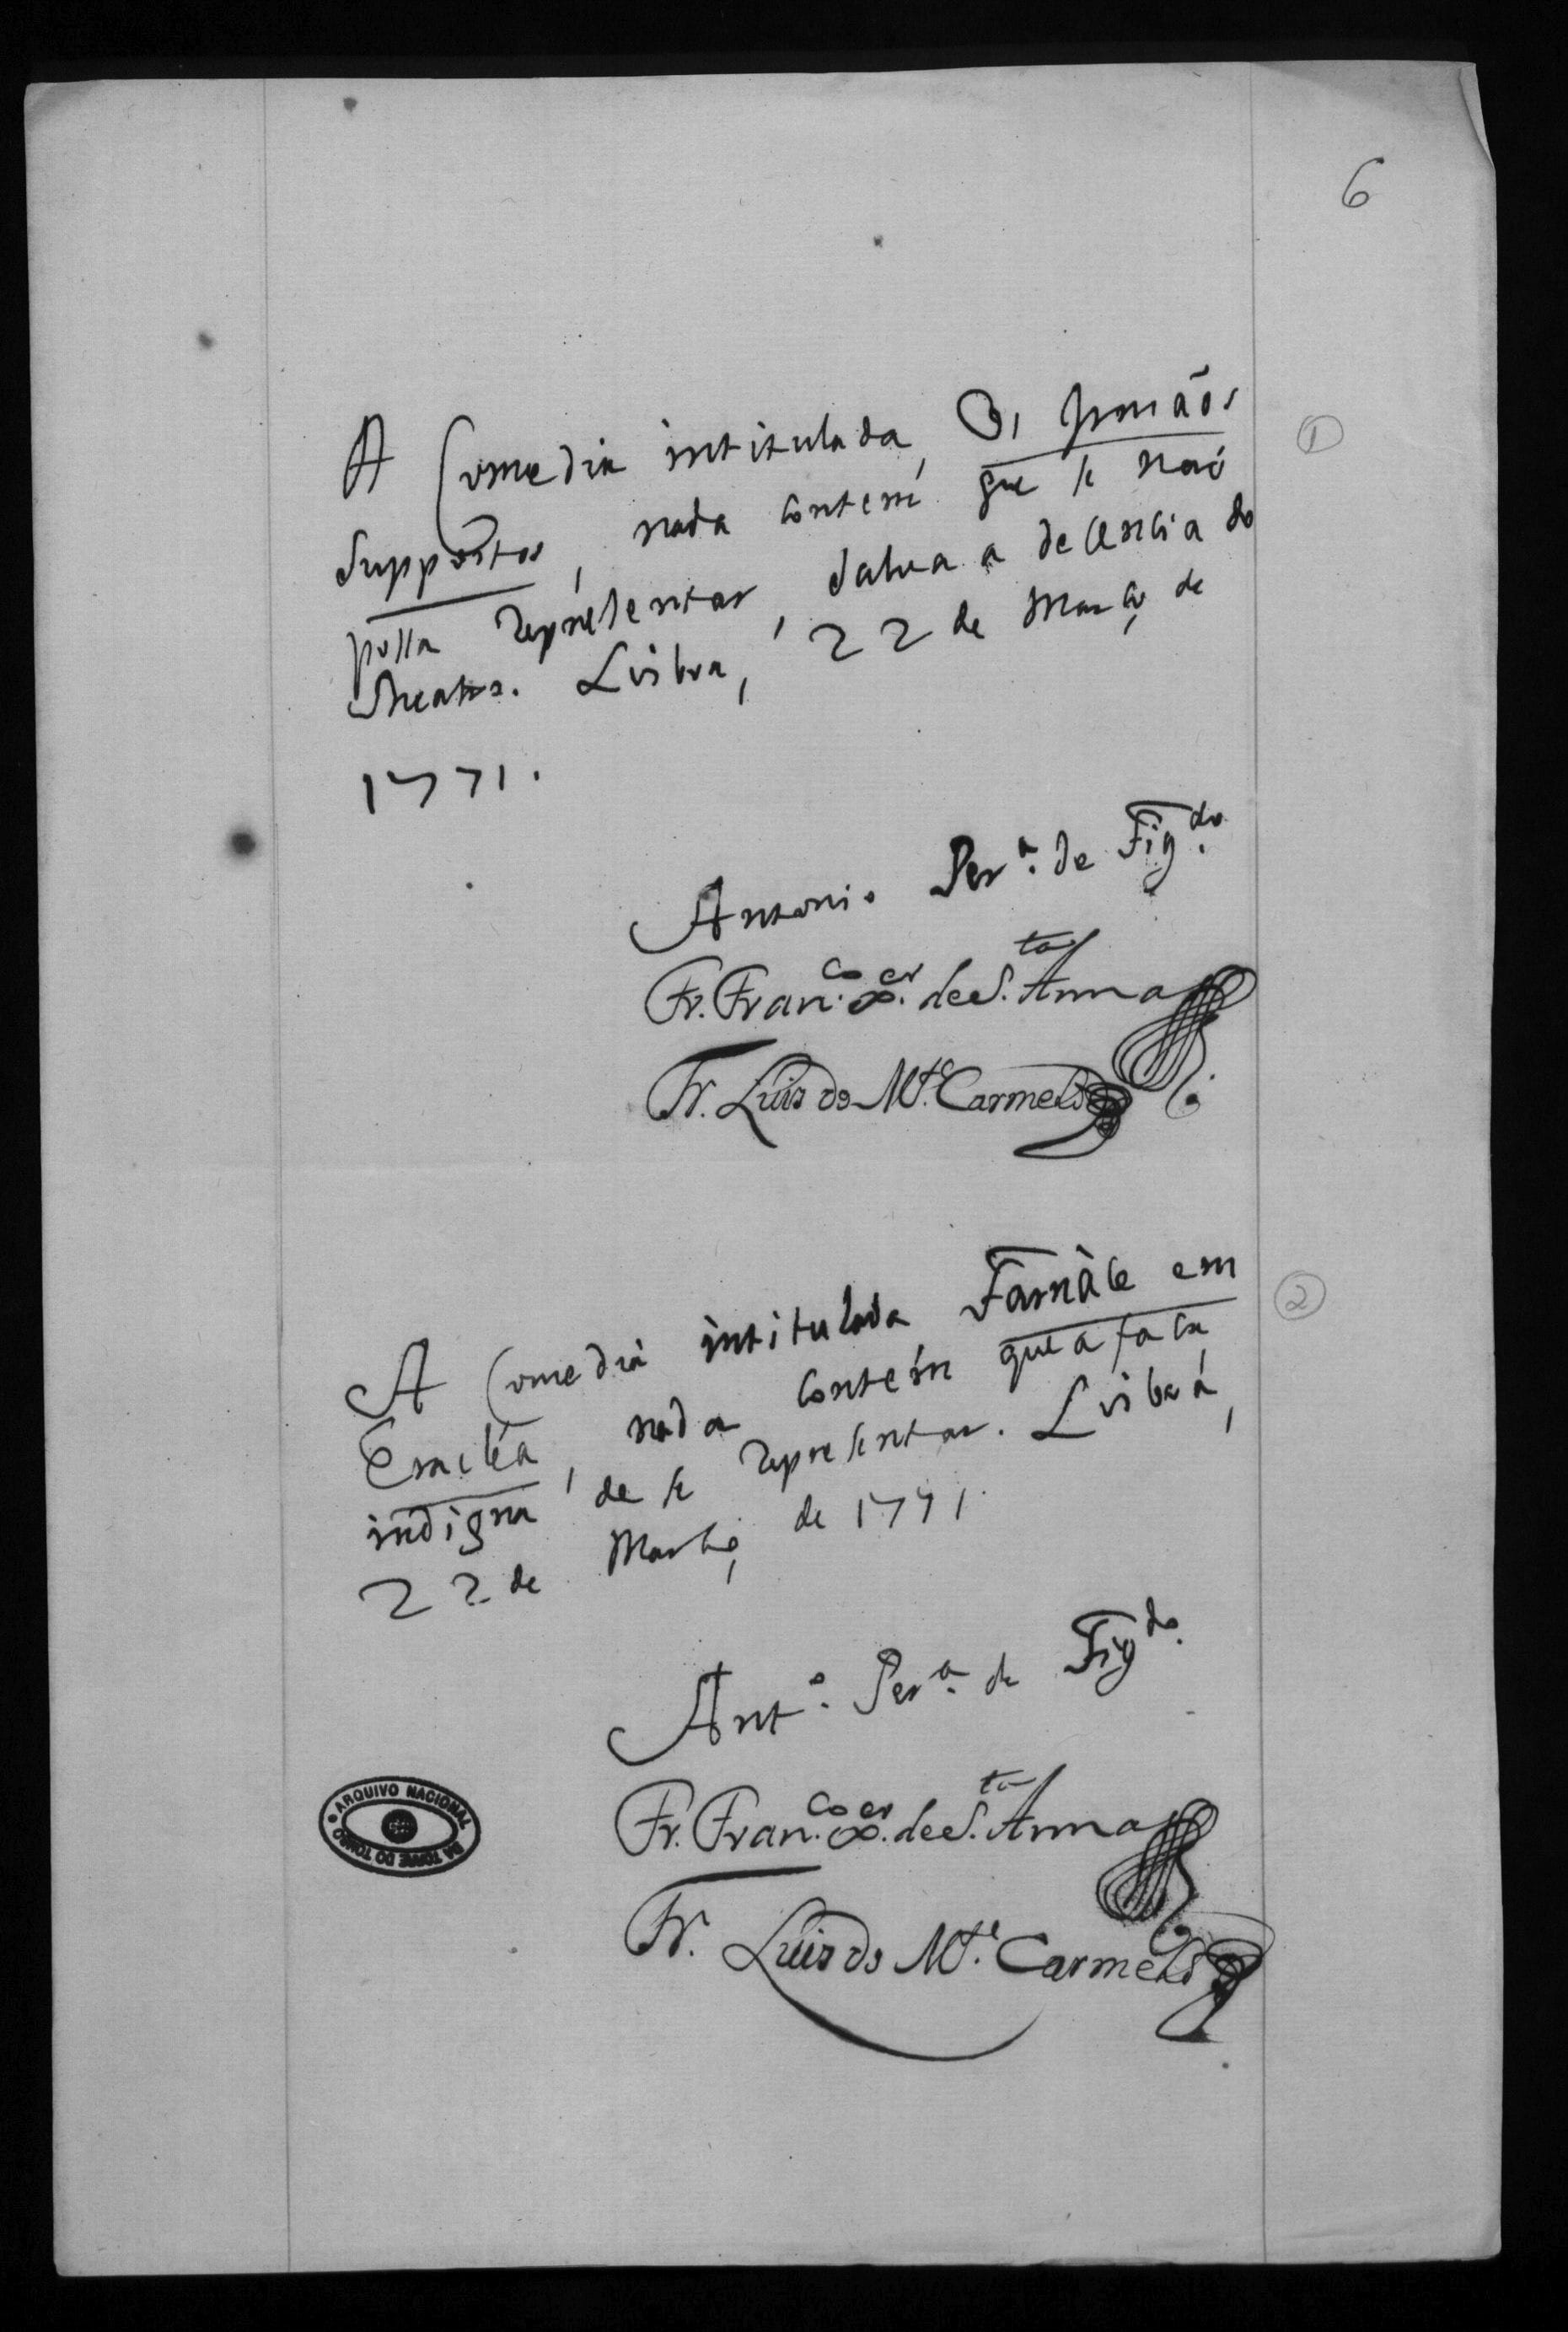 6
A Comedia intitulada, Os Irmãos
Suppostos, nada contem que se naõ
possa representar, salva a decencia do
Theatro. Lisboa, 22 de Março de
1771.
①
Antonio Per.ª de Fig.do
Fr. Fran.co X.er de S.ta Anna
Fr. Luis do M.te Carmelo
A Comedia intitulada Farnàce em
Eraclèa, nada contèm que a faça
indigna de se representar. Lisboa,
22 de Março de 1771.
②
Ant.º Per.ª de Fig.do
Fr. Fran.co X.er de S.ta Anna
Fr. Luis do M.te Carmelo
ARQUIVO NACIONAL DA TORRE DO TOMBO